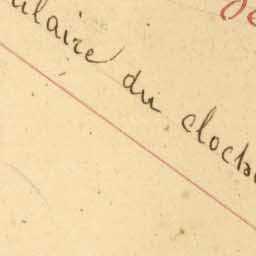 ulaire du cloch